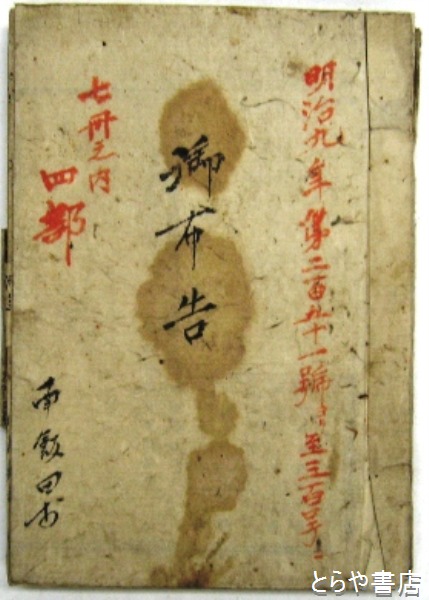 明治九年第二百九十一號ヨリ至三百
御布告
七冊之内
四部
南飯田
とらや書店